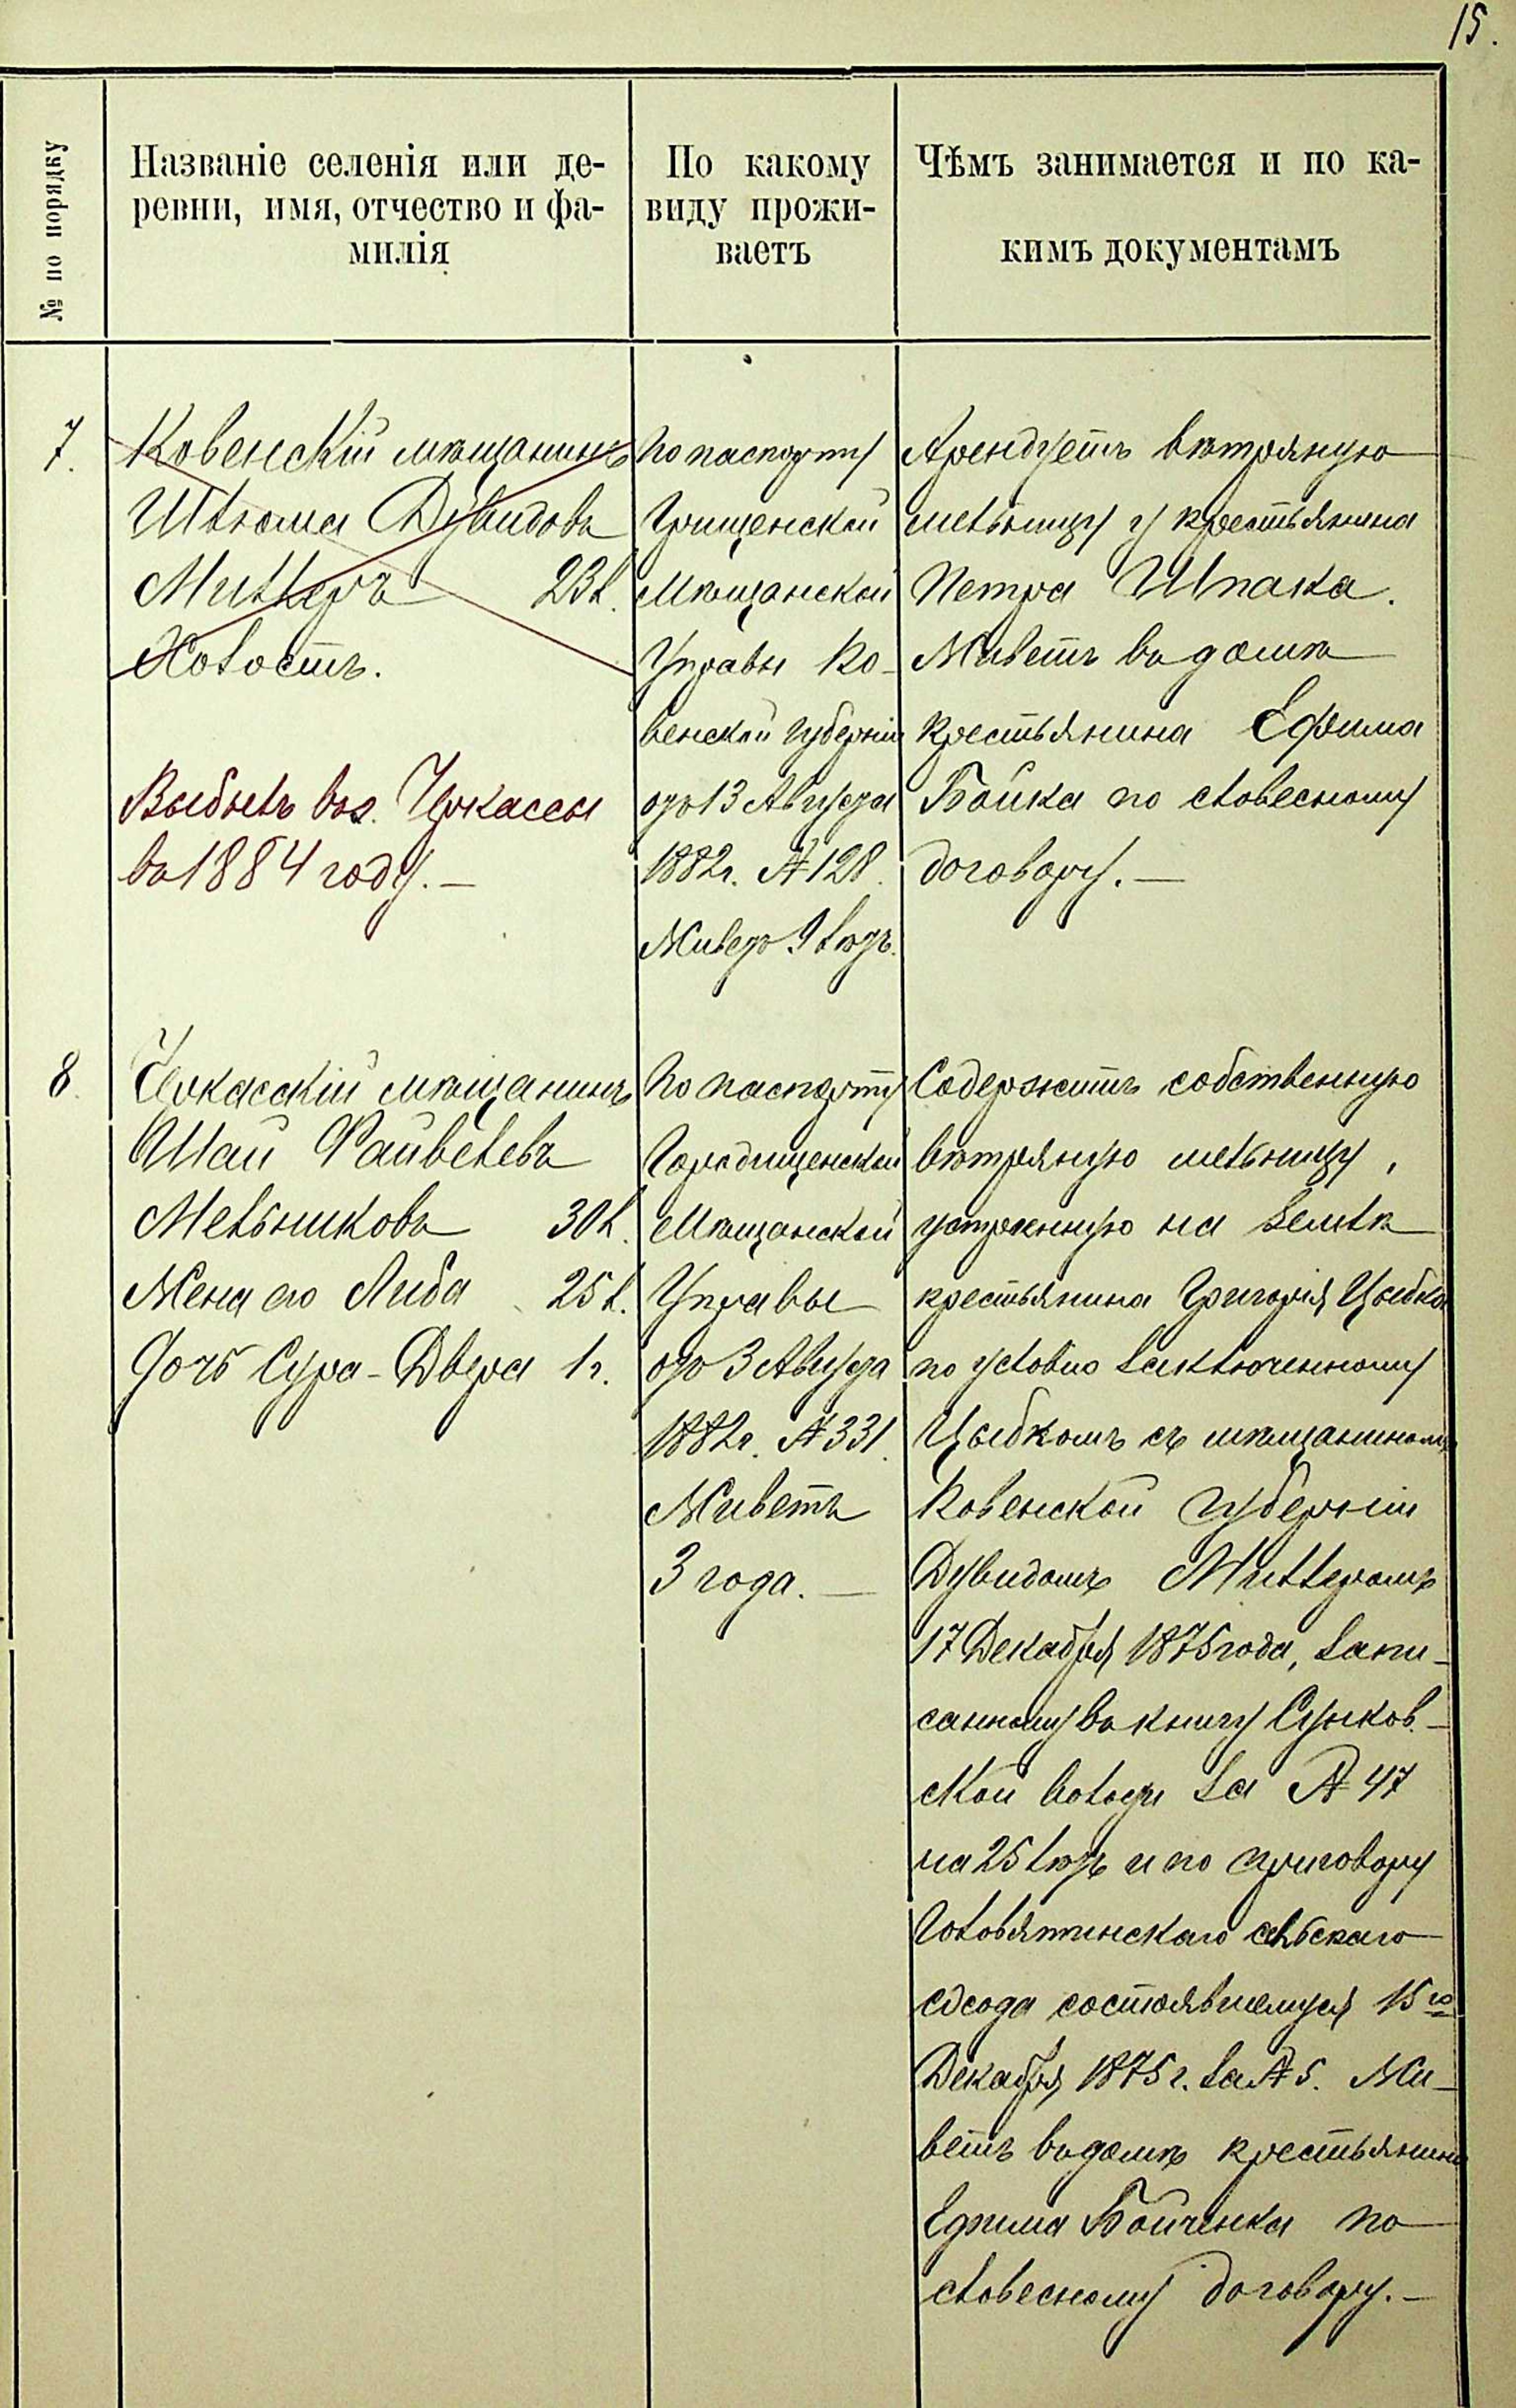 15.
№ по порядку
Названіе селенія или де-
ревни, имя, отчество и фа-
милія
По какому
виду прожи-
ваетъ
Чѣмъ занимается и по ка-
кимъ документамъ
7.
Ковенскій мѣщанинъ
Шлюма Дувидовъ
Миллеръ 23 л.
Холостъ.
Выбылъ въ г. Черкассы
въ 1884 году. —
По паспорту
Мѣщанской
Управы Ко-
венской губерніи
отъ 13 Августа
1882 г. № 128.
Живетъ 9 лѣтъ.
Арендуетъ вѣтряную
мельницу у крестьянина
Петра Шпака.
Живетъ въ домѣ
крестьянина Ефима
Бойка по словесному
договору. —
8.
Черкасскій мѣщанинъ
Шай Файвелевъ
Мельниковъ 30 л.
Жена его Либа 25 л.
Дочь Сура-Двера 1 г.
По паспорту
Городищенской
Мѣщанской
Управы
отъ 3 Августа
1882 г. № 331.
Живетъ
3 года. —
Содержитъ собственную
вѣтряную мельницу,
устроенную на землѣ
крестьянина Григорія Цыбка
по условію заключенному
Цыбкомъ съ мѣщаниномъ
Ковенской губерніи
Дувидомъ Миллеромъ
17 Декабря 1875 года, запи-
санному въ книгу Сунков-
ской волости за № 47
на 25 лѣтъ и по приговору
Головятинскаго сельскаго
схода состоявшемуся 15го
Декабря 1875 г. за № 5. Жи-
ветъ въ домѣ крестьянина
Ефима Бойченка по
словесному договору. —